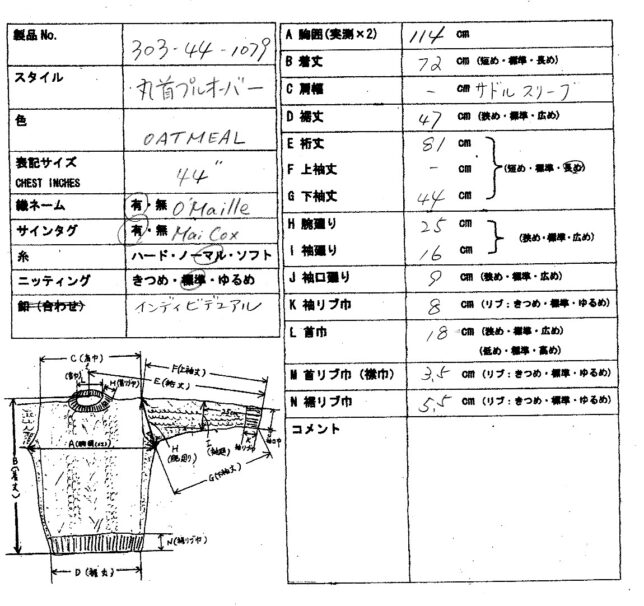 製品No. 303-44-1079
スタイル 丸首プルオーバー
色 OATMEAL
表記サイズ
CHEST INCHES 44"
織ネーム 有・無 O'Maille
サインタグ 有・無 Mai Cox
糸 ハード・ノーマル・ソフト
ニッティング きつめ・標準・ゆるめ
釦(合わせ) インディビデュアル
A 胸囲(実測×2) 114 cm
B 着丈 72 cm (短め・標準・長め)
C 肩幅 - cm サドルスリーブ
D 裾丈 47 cm (狭め・標準・広め)
E 裄丈 81 cm
F 上袖丈 - cm (短め・標準・長め)
G 下袖丈 44 cm
H 腕廻り 25 cm
I 袖廻り 16 cm (狭め・標準・広め)
J 袖口廻り 9 cm (狭め・標準・広め)
K 袖リブ巾 8 cm (リブ:きつめ・標準・ゆるめ)
L 首巾 18 cm (狭め・標準・広め)
(低め・標準・高め)
M 首リブ巾(襟巾) 3.5 cm (リブ:きつめ・標準・ゆるめ)
N 裾リブ巾 5.5 cm (リブ:きつめ・標準・ゆるめ)
コメント
C(肩巾)
F(上袖丈)
E(裄丈)
L
(首巾)
A(胸囲(×2))
B(着丈)
H(腕廻り)
I(袖廻)
K
袖リブ巾
G(下袖丈)
N(裾リブ巾)
D(裾丈)